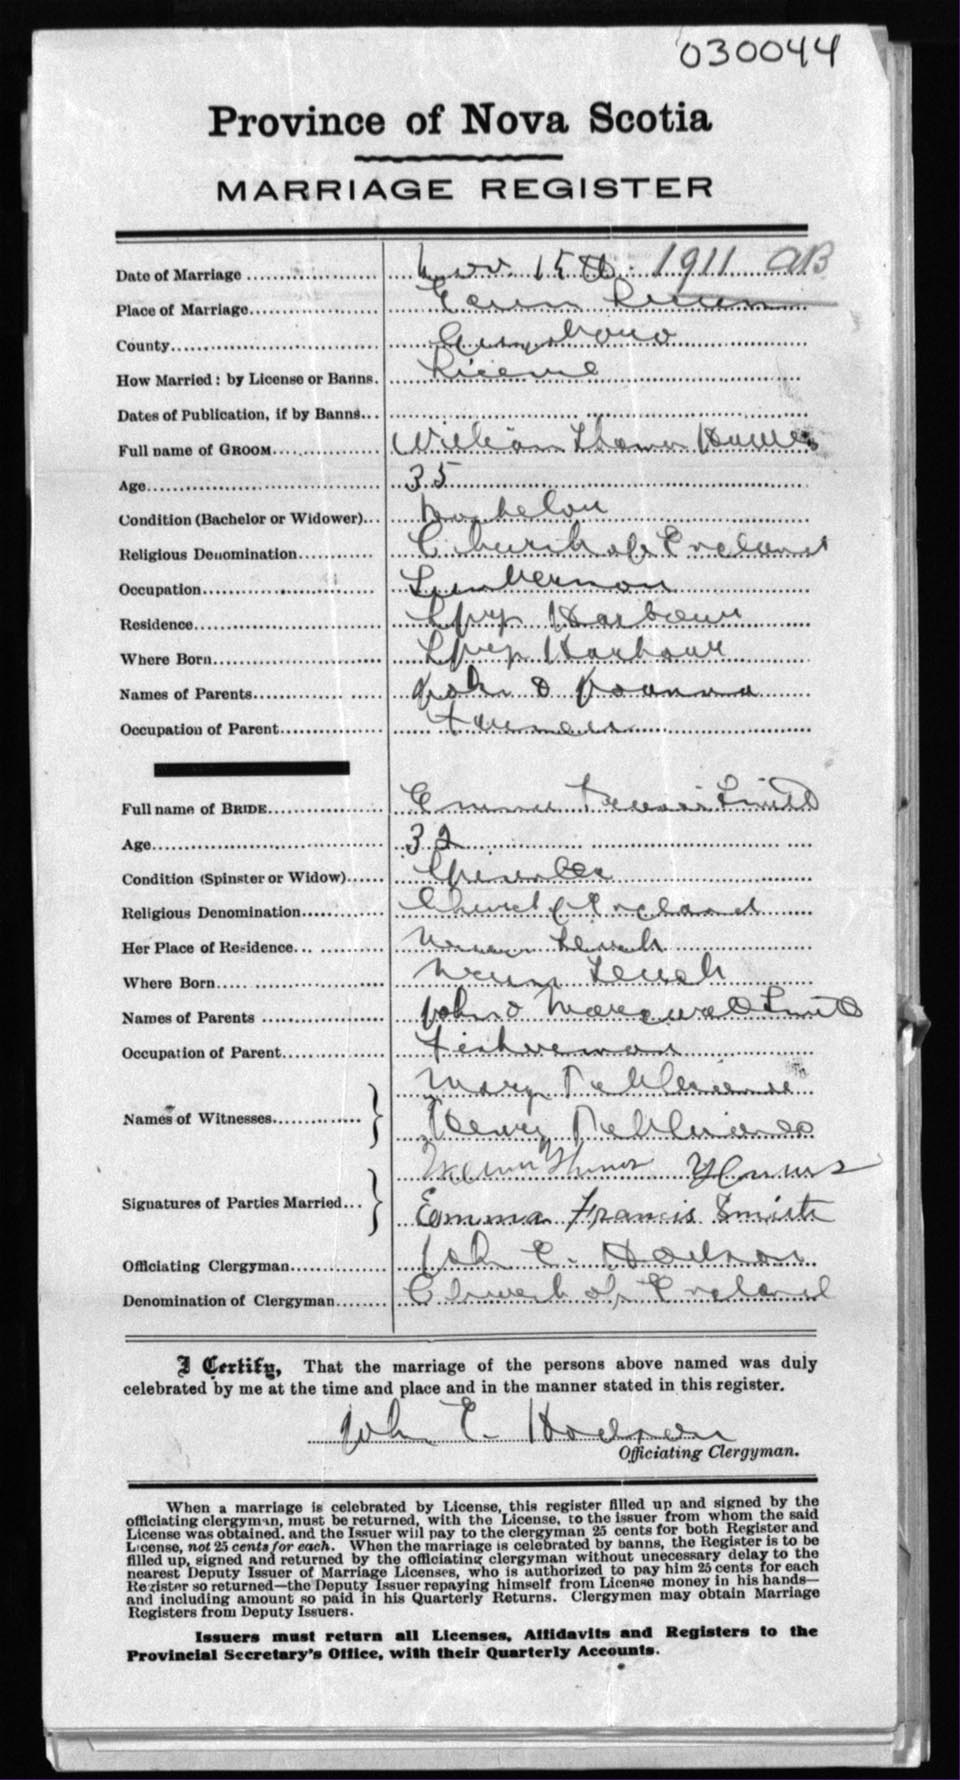 030044
Province of Nova Scotia
MARRIAGE REGISTER
Date of Marriage Nov 15th. 1911 AB
Place of Marriage
County Guysboro
How Married: by License or Banns. License
Dates of Publication, if by Banns
Full name of GROOM William
Age 35
Condition (Bachelor or Widower) Bachelor
Religious Denomination Church of England
Occupation Lumberman
Residence Spry Harbour
Where Born Spry Harbour
Names of Parents John & Joanna
Occupation of Parent Farmer
Full name of BRIDE Emma Francis Smith
Age 32
Condition (Spinster or Widow) Spinster
Religious Denomination Church of England
Her Place of Residence
Where Born
Names of Parents John & Margaret Smith
Occupation of Parent Fisherman
Mary
Names of Witnesses
Henry
Signatures of Parties Married
Emma Francis Smith
Officiating Clergyman John E. Hodson
Denomination of Clergyman Church of England
I Certify, That the marriage of the persons above named was duly
celebrated by me at the time and place and in the manner stated in this register.
John E. Hodson
Officiating Clergyman.
When a marriage is celebrated by License, this register filled up and signed by the
officiating clergyman, must be returned, with the License, to the issuer from whom the said
License was obtained, and the Issuer will pay to the clergyman 25 cents for both Register and
License, not 25 cents for each. When the marriage is celebrated by banns, the Register is to be
filled up, signed and returned by the officiating clergyman without unecessary delay to the
nearest Deputy Issuer of Marriage Licenses, who is authorized to pay him 25 cents for each
Register so returned—the Deputy Issuer repaying himself from License money in his hands—
and including amount so paid in his Quarterly Returns. Clergymen may obtain Marriage
Registers from Deputy Issuers.
Issuers must return all Licenses, Affidavits and Registers to the
Provincial Secretary's Office, with their Quarterly Accounts.